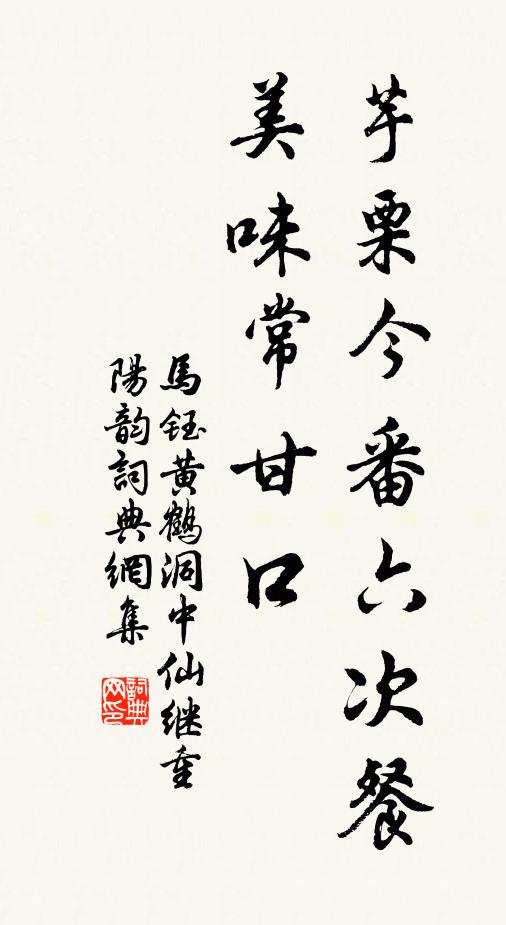 芋栗今番六次餐
美味常甘口
馬鈺黄鶴洞中仙继重
陽韵詞典網集
詞典網印